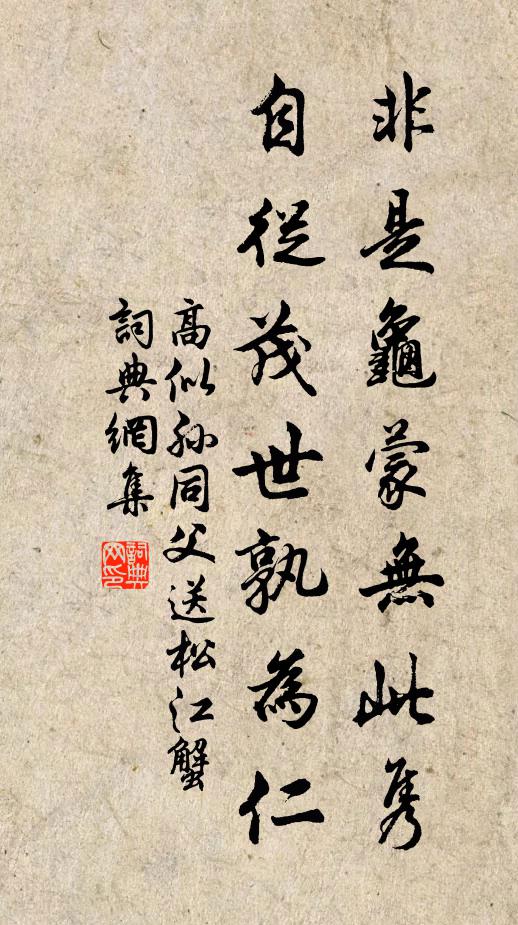 非是龜蒙無此隽
自從茂世孰為仁
高似孫同父送松江蟹
詞典網集
詞典网印